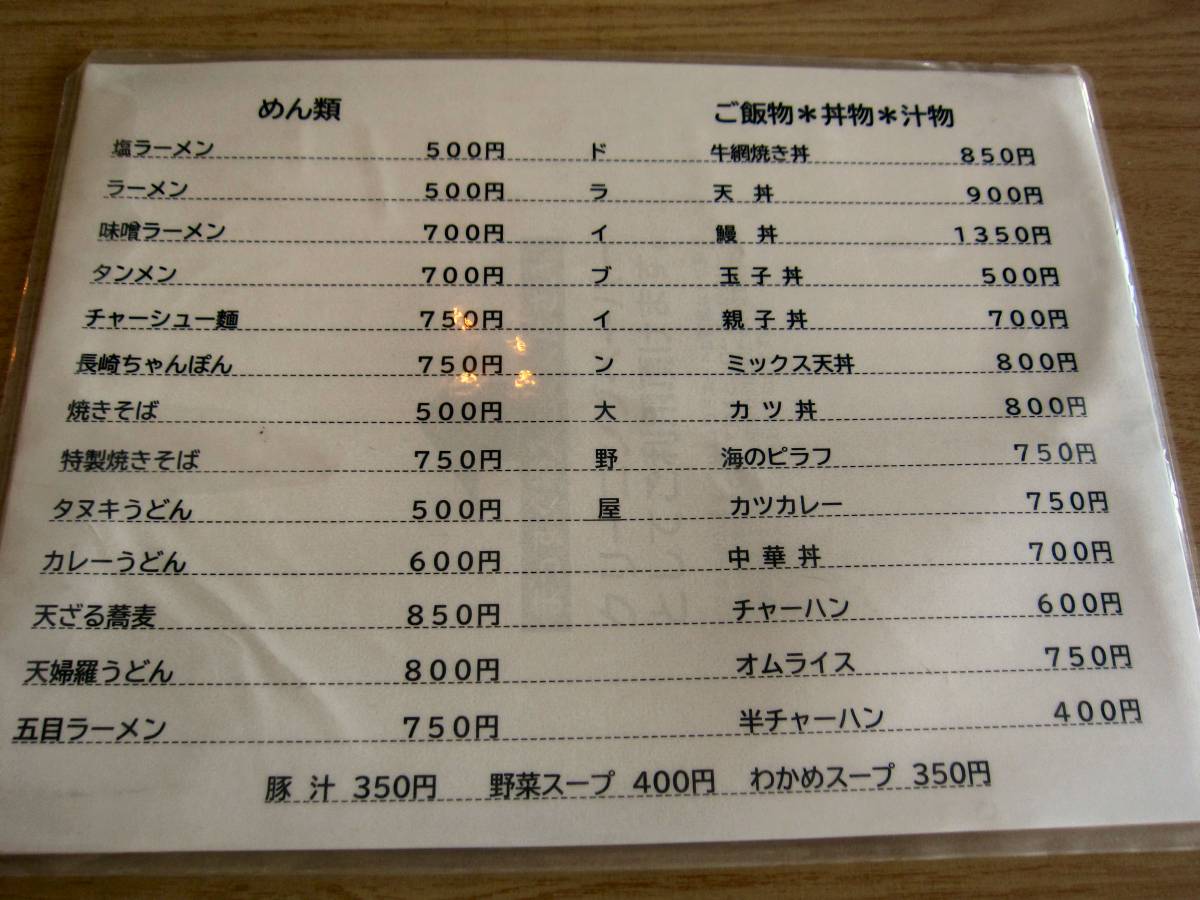 めん類
塩ラーメン 500円
ラーメン 500円
味噌ラーメン 700円
タンメン 700円
チャーシュー麺 750円
長崎ちゃんぽん 750円
焼きそば 500円
特製焼きそば 750円
タヌキうどん 500円
カレーうどん 600円
天ざる蕎麦 850円
天婦羅うどん 800円
五目ラーメン 750円
ドライブイン大野屋
ご飯物＊丼物＊汁物
牛網焼き丼 850円
天 丼 900円
鰻 丼 1350円
玉子丼 500円
親子丼 700円
ミックス天丼 800円
カツ丼 800円
海のピラフ 750円
カツカレー 750円
中華丼 700円
チャーハン 600円
オムライス 750円
半チャーハン 400円
豚汁 350円 野菜スープ 400円 わかめスープ 350円